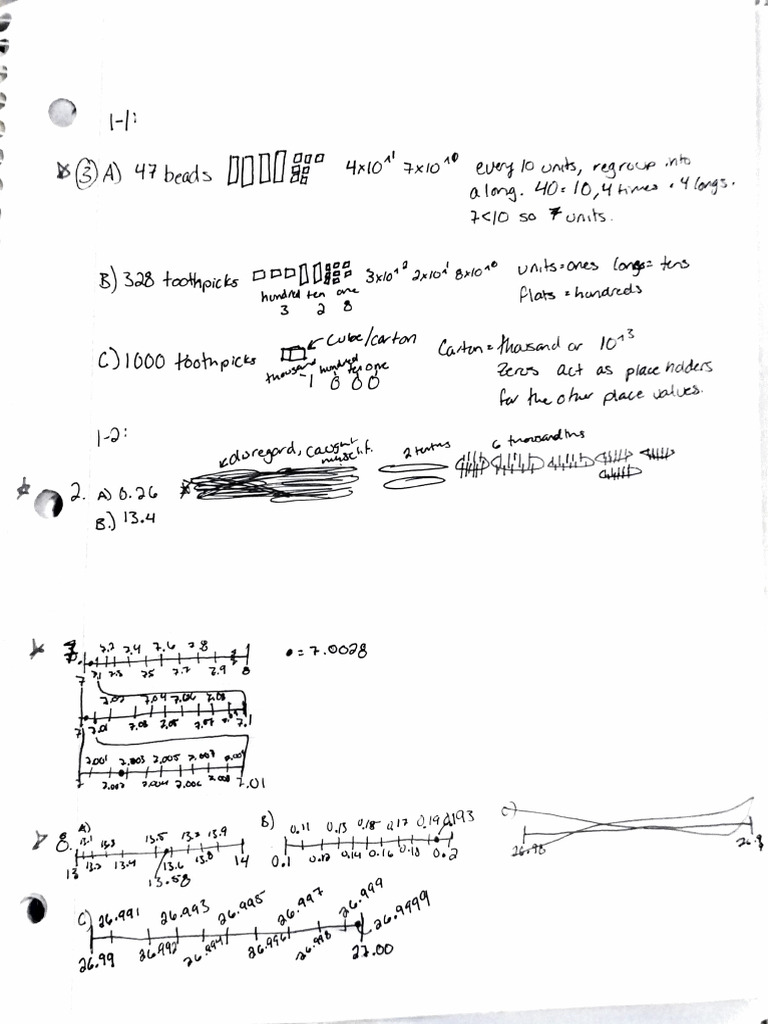 1-1:
③ A) 47 beads 4x10^1 7x10^0 every 10 units, regroup into
a long. 40 = 10, 4 times = 4 longs.
7<10 so 7 units.
B) 328 toothpicks 3x10^2 2x10^1 8x10^0 units=ones longs= tens
hundred ten one flats = hundreds
3 2 8
C) 1000 toothpicks cube/carton Carton = thousand or 10^3
thousand hundred ten one Zeros act as place holders
1 0 0 0 for the other place values.
1-2:
disregard, caught 2 tenths 6 thousandths
2. A) 0.26
B.) 13.4
7.2 7.4 7.6 7.8 • = 7.0028
7 7.1 7.3 7.5 7.7 7.9 8
7.02 7.04 7.06 7.08
7 7.01 7.03 7.05 7.07 7.09 7.1
7.001 7.003 7.005 7.007 7.009
7 7.002 7.004 7.006 7.008 7.01
8. A) 13.1 13.3 13.5 13.7 13.9
13 13.2 13.4 13.6 13.8 14
13.58
B) 0.11 0.13 0.15 0.17 0.19 0.193
0.1 0.12 0.14 0.16 0.18 0.2
C)
26.98
C) 26.991 26.993 26.995 26.997 26.999 26.9999
26.99 26.992 26.994 26.996 26.998 27.00